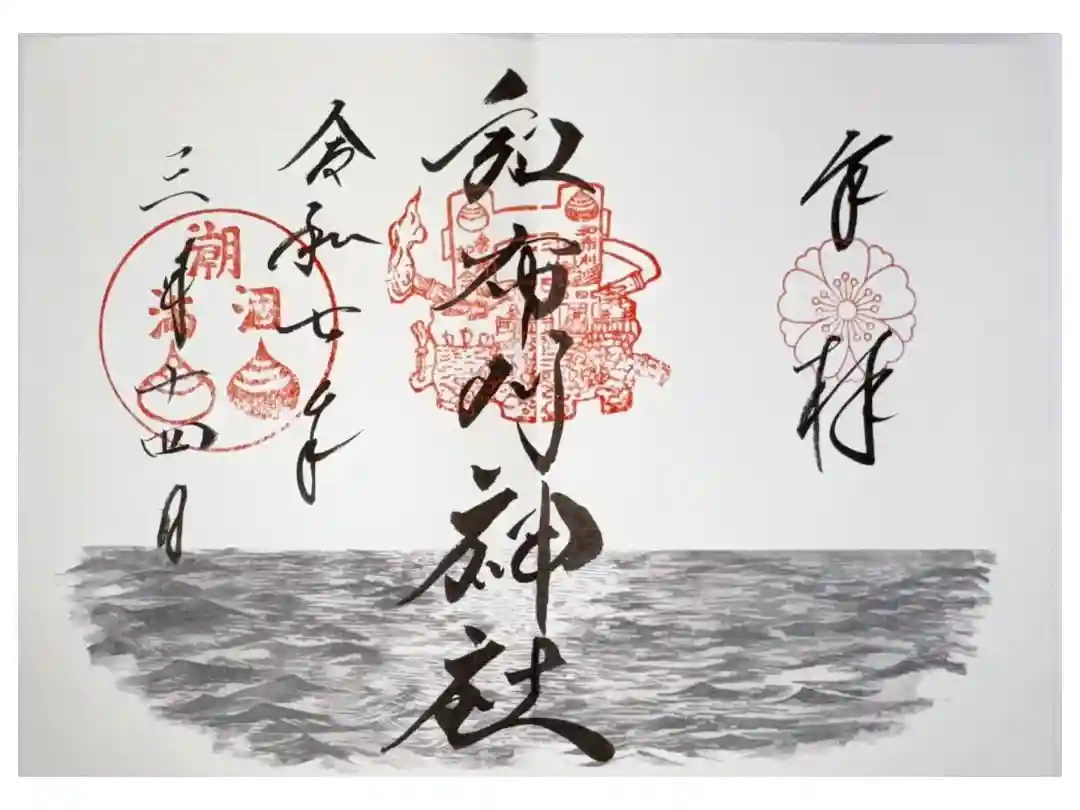 奉拝
和布刈神社
和布刈
令和七年
三月十四日
潮
涸
満